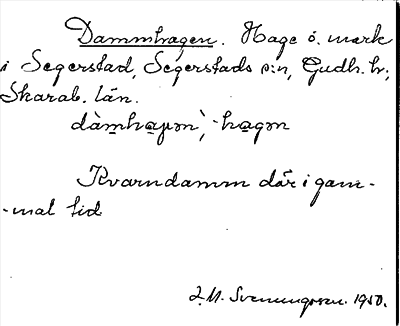 Dammhagen. Hage o. mark
i Segerstad, Segerstads s:n, Gudh. hr;
Skarab. län.
dàm̲ha̲gən, -ha̲gən
Kvarndamm där i gam-
-mal tid
J. M. Svenungsson. 1950.